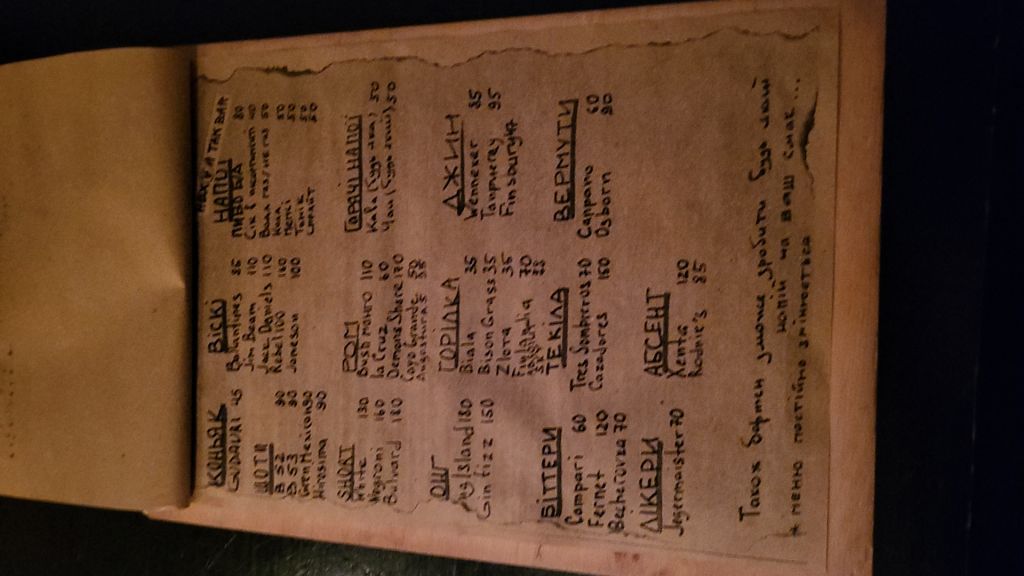 КОНЬЯК
GUDAURI 45
ШОТИ
B 52 90
B 53 90
Green Mexican 90
Hirosima 90
SHORT
White 130
Negroni 160
Bulvard 180
ЛОНГ
Island 180
Gin Fizz 150
БІТТЕРИ
Campari 60
Fernet 120
Becherovka 70
ЛІКЕРИ
Jegermaister 70
ВІСКІ
Ballantines 85
Jim Beam 110
Jack Daniels 110
Rebel 160
Jameson 100
РОМ
110
La Cruz 60
Demons Share 170
Cayo Grande 50
Angosturas
ГОРІЛКА
Biala 35
Bison Grass 35
Zlota 35
Finlandia 70
ТЕКІЛА
Tres Sombreros 70
Cazadores 160
АБСЕНТ
Xenta 120
Rodnie's 85
НАПОЇ
ПИВО БІЛА 80
Сік 40
Вода газ/не газ 50
Кола 50
Pepsi 50
Тонік 50
Спрайт 50
ГАРЯЧІ НАПОЇ
Кава (будь яка) 50
Чай (будь який) 50
ДЖИН
Wenneker 85
Tanqueray 95
Finsbury
ВЕРМУТИ
Cappano 60
Osborn 90
Також бартен зможе зробити будь який
напій на ваш смак ...
* меню постійно змінюється